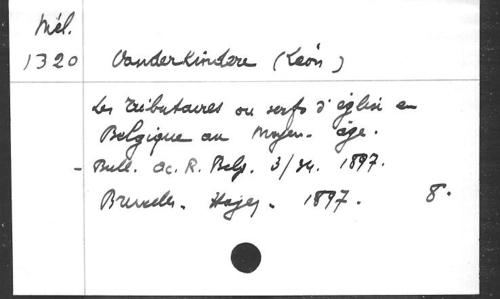 Mél.
1320 Vanderkindere (Léon)
Les Tributaires ou serfs d'église en
Belgique au Moyen-âge.
- Bull. Ac. R. Belg. 3/34. 1897.
Bruxelles. Hayez. 1897. 8°.